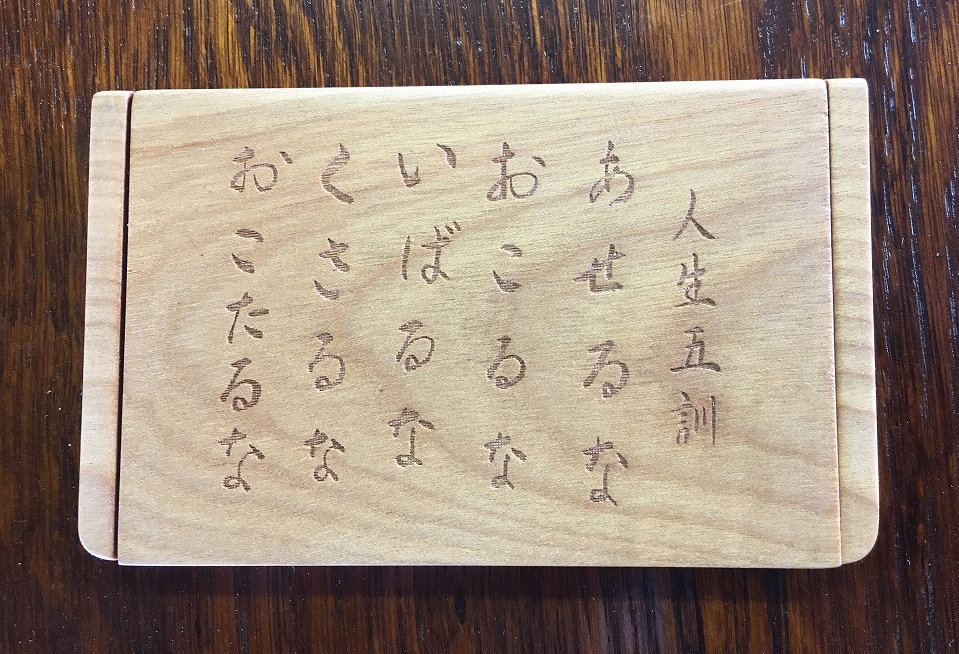 人生五訓
あせるな
おこるな
いばるな
くさるな
おこたるな